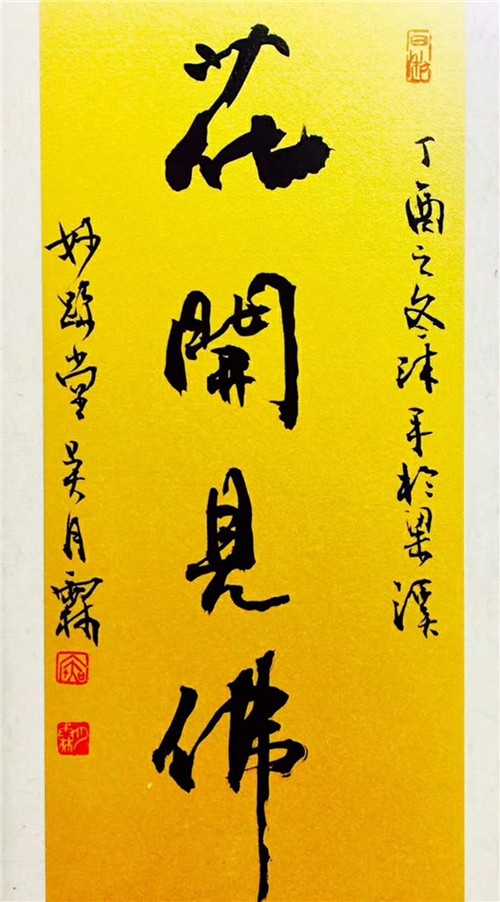 丁酉之冬沐手於梁溪
花開見佛
妙堂吴月霖